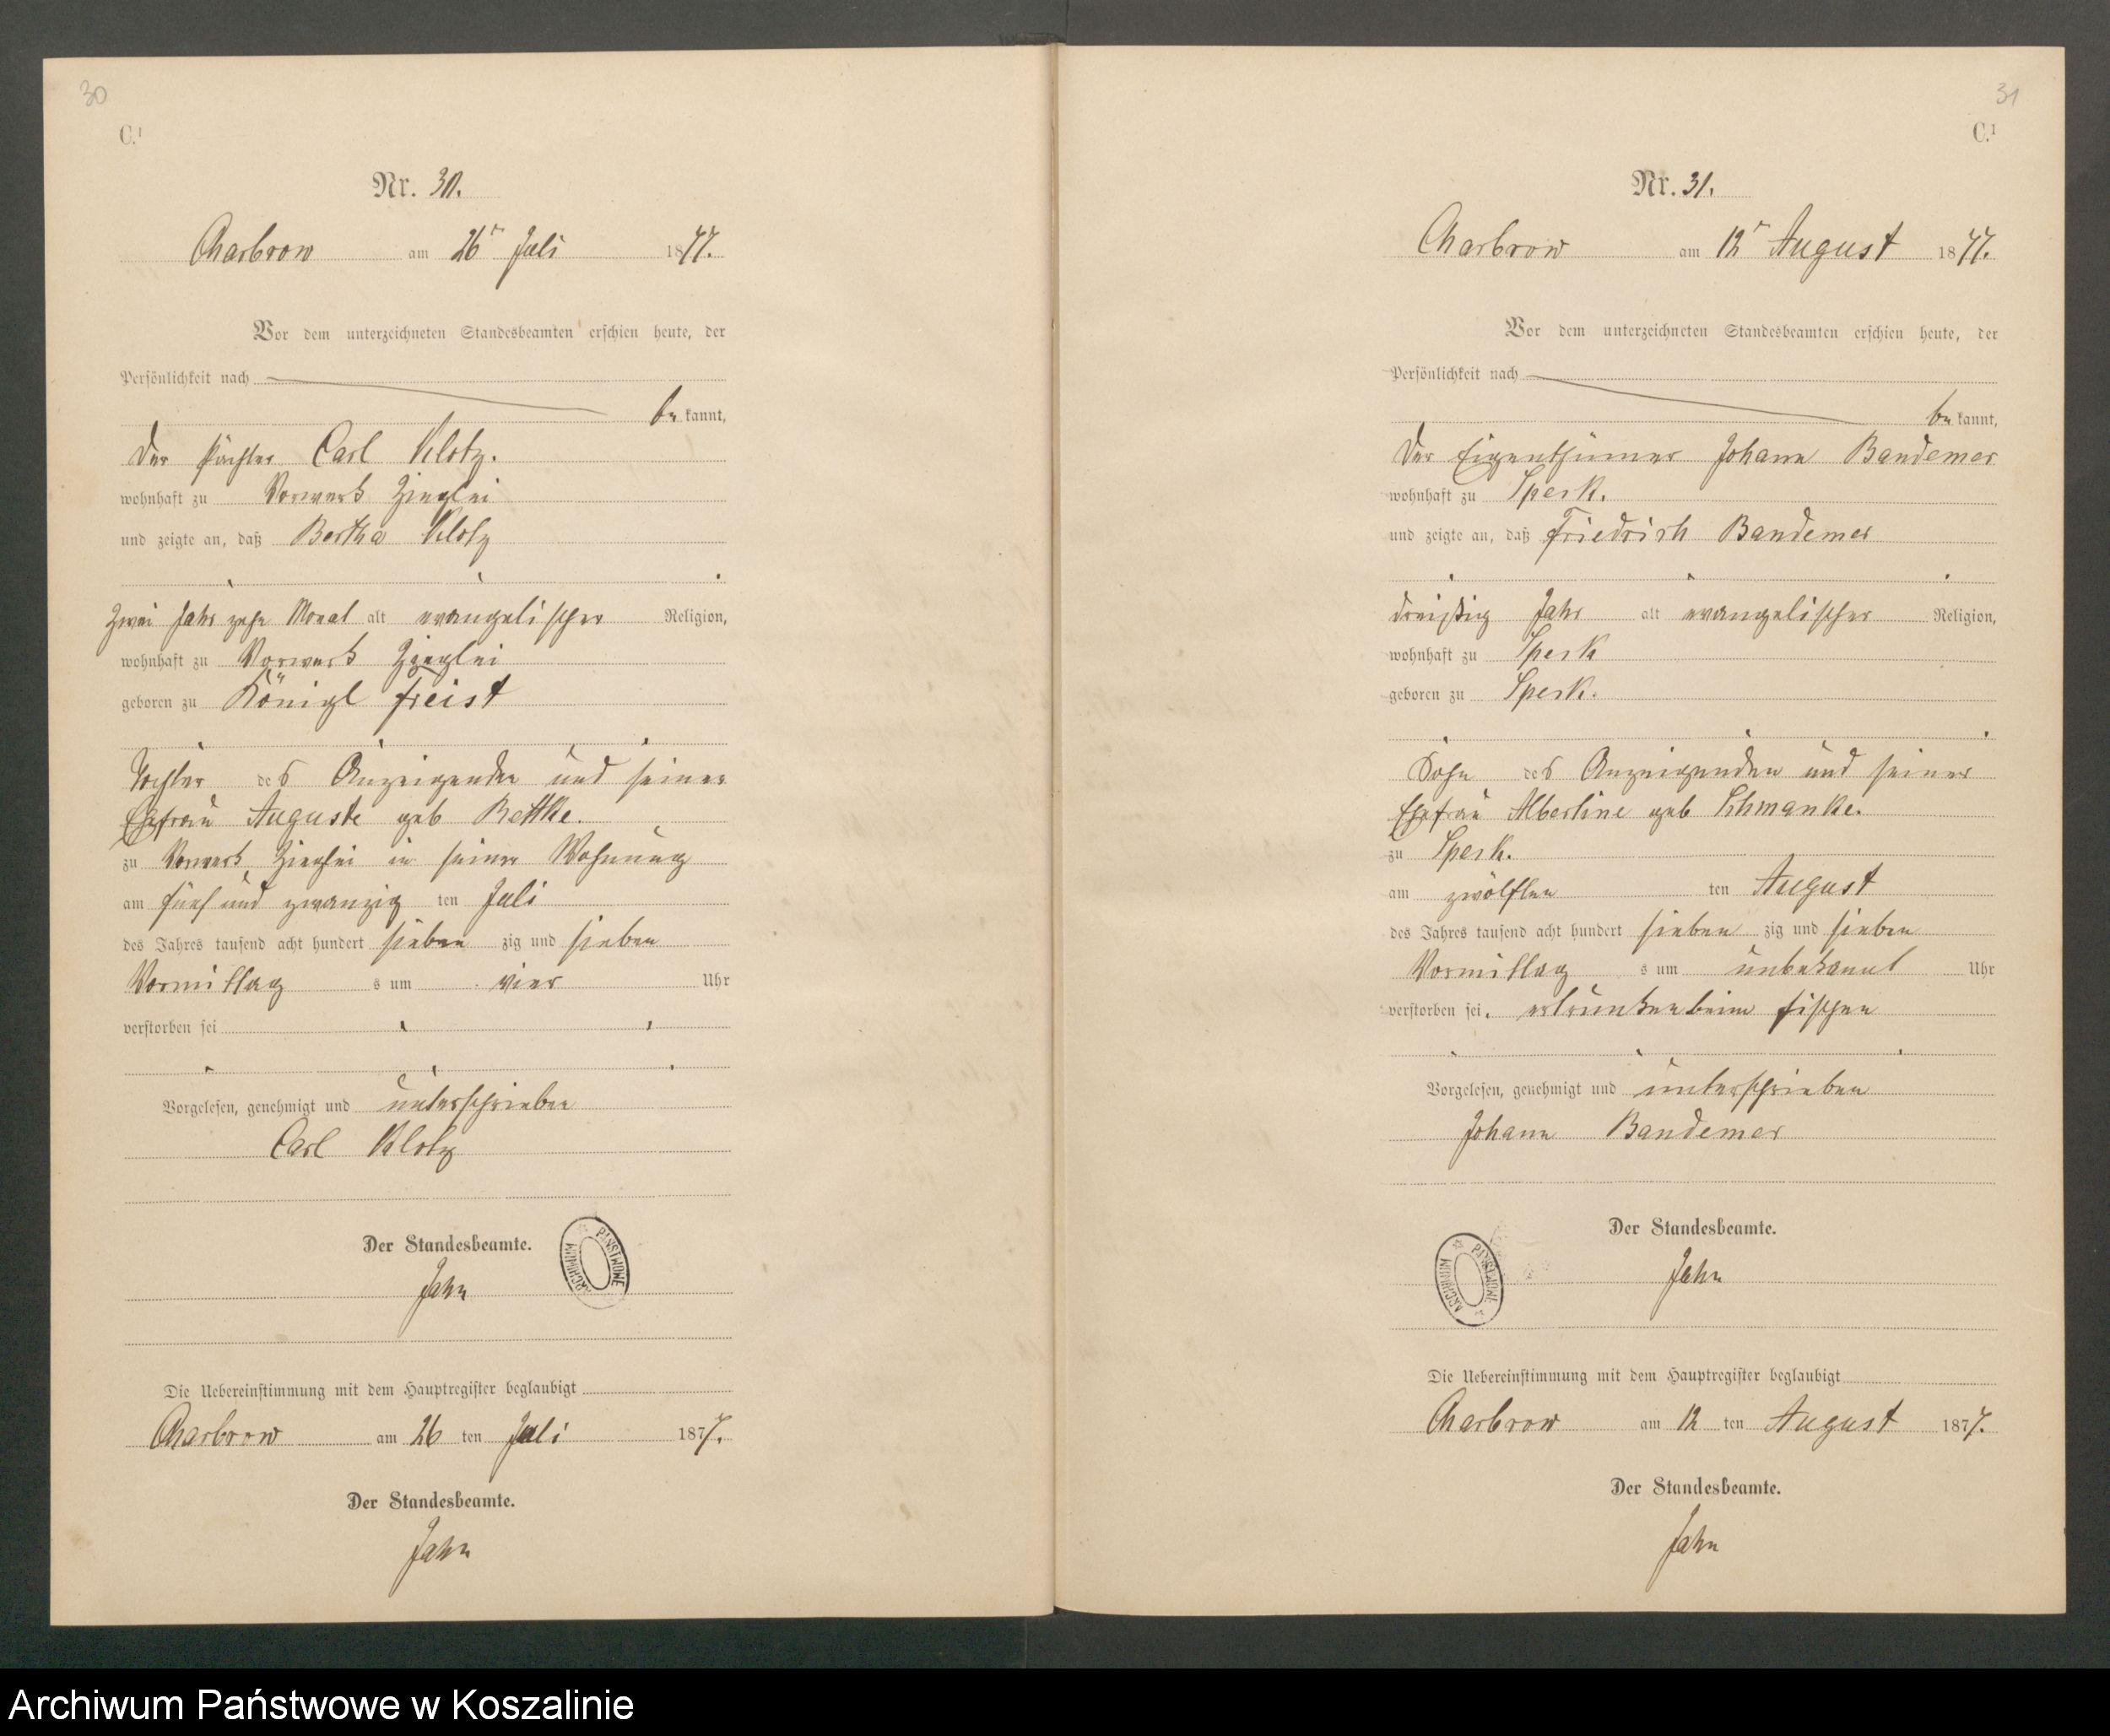 30
C.1
Nr. 30.
Charbrow am 26ten Juli 1877.
Vor dem unterzeichneten Standesbeamten erschien heute, der
Persönlichkeit nach
be kannt,
Der Pächter Carl Klotz.
wohnhaft zu Vorwerk Zieglei
und zeigte an, daß Bertha Klotz
zwei Jahr zehn Monat alt evangelischer Religion,
wohnhaft zu Vorwerk Zieglei
geboren zu Königl Freist
Tochter des Anzeigenden und seiner
Ehefrau Auguste geb Bettke.
zu Vorwerk Zieglei in seiner Wohnung
am fünf und zwanzig ten Juli
des Jahres tausend acht hundert sieben zig und sieben
Vormittag s um vier Uhr
verstorben sei
Vorgelesen, genehmigt und unterschrieben
Carl Klotz
Der Standesbeamte.
Jahn
ARCHIWUM PAŃSTWOWE
Die Uebereinstimmung mit dem Hauptregister beglaubigt
Charbrow am 26 ten Juli 1877.
Der Standesbeamte.
Jahn
31
C.1
Nr. 31.
Charbrow am 12t August 1877.
Vor dem unterzeichneten Standesbeamten erschien heute, der
Persönlichkeit nach
be kannt,
Der Eigenthümer Johann Bandemer
wohnhaft zu Sperk.
und zeigte an, daß Friedrich Bandemer
dreißig Jahr alt evangelischer Religion,
wohnhaft zu Sperk
geboren zu Sperk.
Sohn des Anzeigenden und seiner
Ehefrau Albertine geb Schmanke.
zu Sperk.
am zwölften ten August
des Jahres tausend acht hundert sieben zig und sieben
Vormittag s um unbekannt Uhr
verstorben sei. ertrunken beim fischen
Vorgelesen, genehmigt und unterschrieben
Johann Bandemer
Der Standesbeamte.
Jahn
ARCHIWUM PAŃSTWOWE
Die Uebereinstimmung mit dem Hauptregister beglaubigt
Charbrow am 12 ten August 1877.
Der Standesbeamte.
Jahn
Archiwum Państwowe w Koszalinie